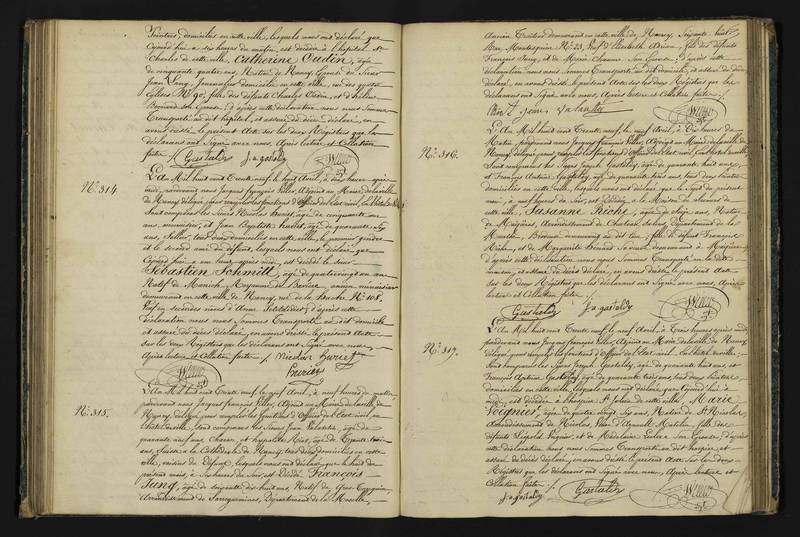 Peintres, domiciliés en cette ville, lesquels nous ont déclaré que
aujourd'hui à six heures du matin, est décédée à l'hôpital St
Charles de cette ville, Catherine Oudin, âgée
de cinquante quatre ans, Native de Nancy, Epouse du Sieur
Jean Lang, Journalier domicilié en cette ville, rue des quatre
Eglises N° 90, fille des défunts Charles Oudin, et d'Hélène
son Epouse; d'après cette déclaration nous nous sommes
Transporté au dit hôpital, et assuré du décès déclaré, en
avons dressé le présent Acte sur les deux Régistres que les
déclarants ont Signé avec nous, Après Lecture et Collation
faites. /. Gastaldy Ja gastaldy
N° 314.
L'An Mil huit cent Trente neuf, le huit Avril, à deux heures après
midi, pardevant nous Jacques françois Adjoint au Maire de la ville
de Nancy délégué pour remplir les fonctions d'Officier de l'Etat civil, en l'hôtel de ville
Sont comparus les Sieurs Nicolas âgé de cinquante un
ans, menuisier, et Jean Baptiste âgé de quarante Six
ans, Sellier, tous deux domiciliés en cette ville, le premier gendre
et le second ami du défunt, lesquels nous ont déclaré que
Aujourd'hui à une heure après midi, est décédé le sieur
Sébastien Schmitt, âgé de quatrevingt un an
Natif de Munich, Royaume de Bavière, ancien menuisier
demeurant en cette ville de Nancy, rue de la N° 108.
Veuf en secondes noces d'Anne d'après cette
déclaration nous nous sommes Transporté au dit domicile
et assuré du décès déclaré, en avons dressé le présent Acte
sur les deux Régistres que les déclarants ont Signé avec nous,
Après Lecture et Collation faites. /. Nicolas
N° 315.
L'An Mil huit cent Trente neuf, le neuf Avril, à neuf heures du matin,
pardevant nous Jacques françois Adjoint au Maire de la ville de
Nancy, délégué pour remplir les fonctions d'Officier de l'Etat civil, en
l'hôtel de ville, Sont comparus les Sieurs Jean âgé de
quarante neuf ans, et hyppolite âgé de Trente trois
ans, Suisse à la Cathédrale de Nancy, tous deux domiciliés en cette
ville, voisins du Défunt, lesquels nous ont déclaré que le huit du
présent mois, à heures du soir, est Décédé François
Jung, âgé de soixante dix huit ans, Natif de
Arrondissement de Sarreguemines, Département de la Moselle,
Ancien demeurant en cette ville de Nancy,
Rue Montesquieu N° 23, Veuf d'Elisabeth Adrian, fils des défunts
François Jung, et de Marie Son Epouse; d'après cette
déclaration nous nous sommes Transporté au dit domicile, et assuré du décès
déclaré, en avons dressé le présent Acte sur les deux Régistres que les
déclarants ont Signé avec nous, Après Lecture et Collation faites. /.
N° 316.
L'An Mil huit cent Trente neuf, le neuf Avril, à dix heures du
Matin, pardevant nous Jacques françois Adjoint au Maire de la ville de
Nancy, délégué pour remplir les fonctions d'Officier de l'Etat civil, en l'hôtel de ville,
Sont comparus les Sieurs Joseph Gastaldy, âgé de quarante huit ans,
et François Antoine Gastaldy, âgé de quarante trois ans, tous deux Peintres
domiciliés en cette ville, lesquels nous ont déclaré que le sept du présent
mois, à neuf heures du soir, est Décédée à la Maison de secours de
cette ville, Susanne Riche, âgée de Seize ans, Native
de Arrondissement de Chateau Salins, Département de la
Meurthe, demeurant au dit lieu, fille de défunt François
Riche, et de Marguerite Sa veuve demeurant à
d'après cette déclaration nous nous sommes Transporté en la dite
maison, et assuré du décès déclaré, en avons dressé le présent Acte
sur les deux Régistres que les déclarants ont Signé avec nous, Après
Lecture et Collation faites. /.
Gastaldy Ja gastaldy
N° 317.
L'An Mil huit cent Trente neuf, le neuf Avril, à Trois heures après midi
pardevant nous Jacques françois Adjoint au Maire de la ville de Nancy,
délégué pour remplir les fonctions d'Officier de l'Etat civil, en l'hôtel de ville;
Sont comparus les Sieurs Joseph Gastaldy, âgé de quarante huit ans, et
François Antoine Gastaldy, âgé de quarante trois ans, tous deux Peintres
domiciliés en cette ville, lesquels nous ont déclaré que Aujourd'hui à
midi, est décédée à l'hospice St Julien de cette ville, Marie
Voignier, âgée de quatre vingt six ans, Native de St Nicolas,
Arrondissement de Nancy, Veuve d'Arnould Mathieu, fille des
défunts Léopold Voignier, et de Madelaine son Epouse; d'après
cette déclaration nous nous sommes Transporté au dit hospice, et
assuré du décès déclaré, en avons dressé le présent Acte sur les deux
Régistres que les déclarants ont Signé avec nous, Après Lecture et
Collation faites. /.
Ja gastaldy Gastaldy